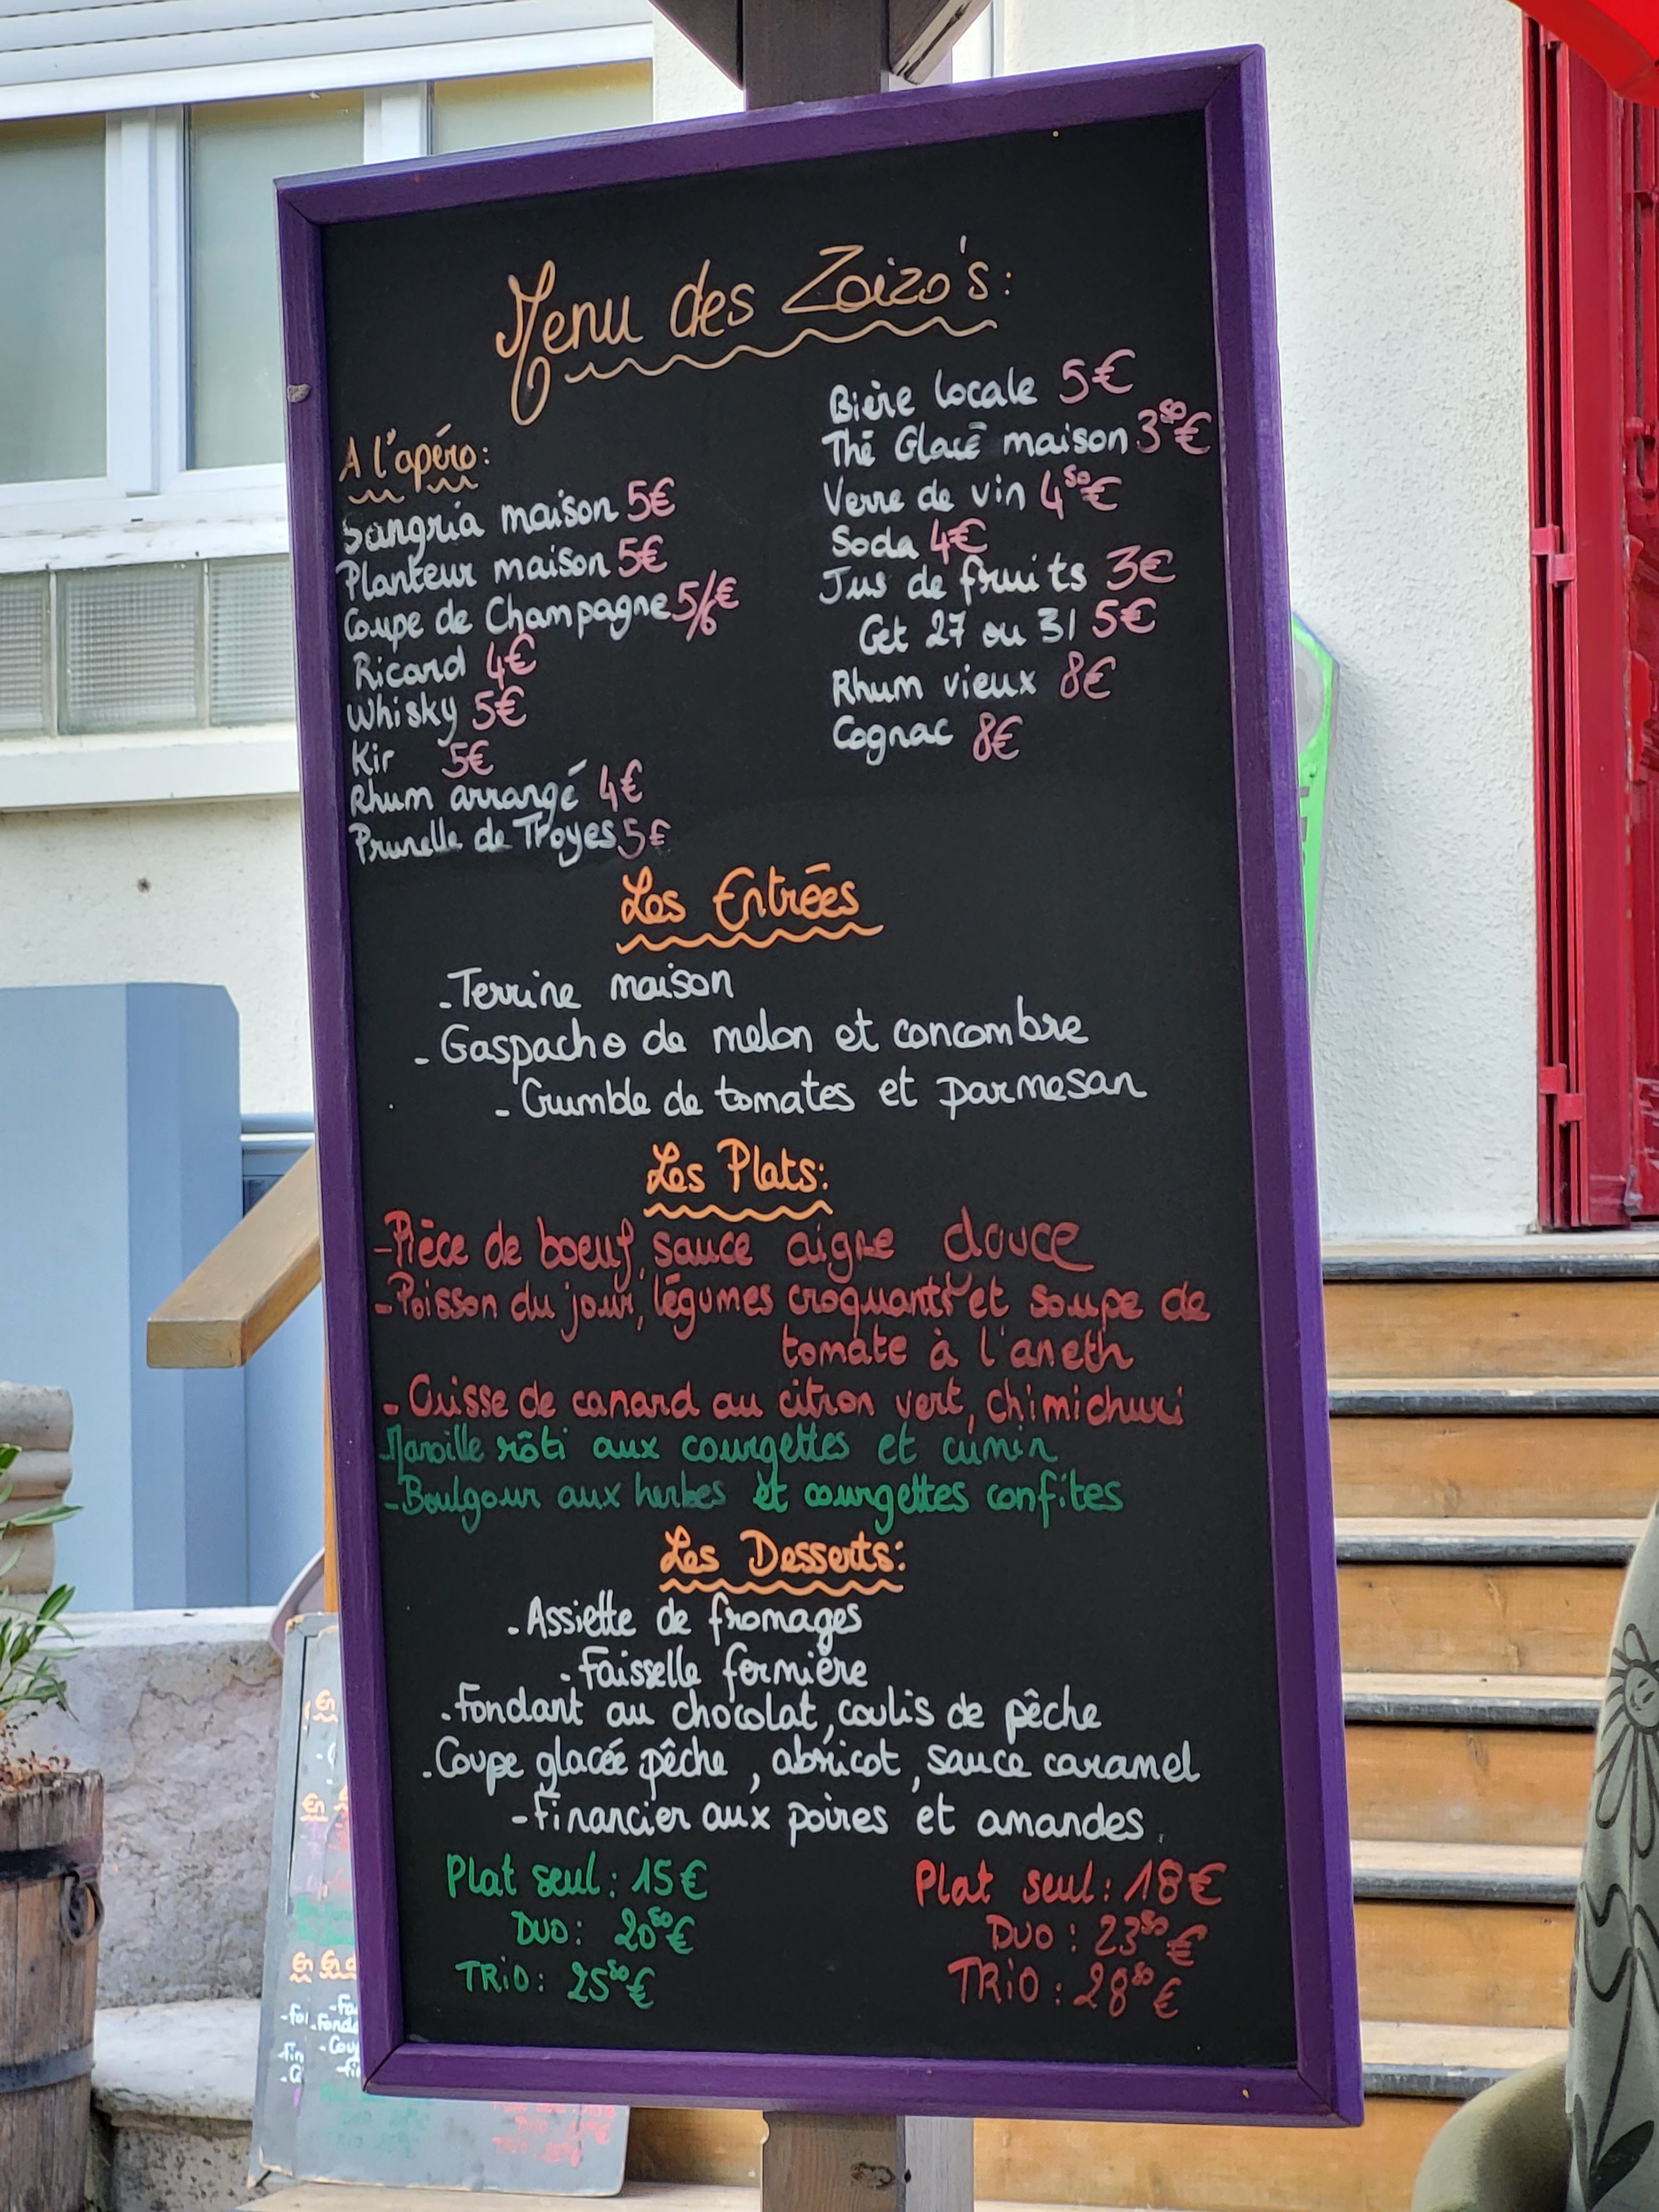 Menu des Zoizo's:
A l'apéro:
Sangria maison 5€
Planteur maison 5€
Coupe de Champagne 5/6€
Ricard 4€
Whisky 5€
Kir 5€
Rhum arrangé 4€
Prunelle de Troyes 5€
Bière locale 5€
Thé Glacé maison 3⁵⁰€
Verre de vin 4⁵⁰€
Soda 4€
Jus de fruits 3€
Get 27 ou 31 5€
Rhum vieux 8€
Cognac 8€
Les Entrées
-Terrine maison
-Gaspacho de melon et concombre
-Crumble de tomates et parmesan
Les Plats:
-Pièce de boeuf, sauce aigre douce
-Poisson du jour, légumes croquants et soupe de
tomate à l'aneth
-Cuisse de canard au citron vert, chimichuri
Maroille rôti aux courgettes et cumin
-Boulgour aux herbes et courgettes confites
Les Desserts:
-Assiette de fromages
-Faisselle fermière
-Fondant au chocolat, coulis de pêche
-Coupe glacée pêche, abricot, sauce caramel
-Financier aux poires et amandes
Plat seul: 15€
DUO: 20⁵⁰€
TRIO: 25⁵⁰€
Plat seul: 18€
DUO: 23⁵⁰€
TRIO: 28⁵⁰€